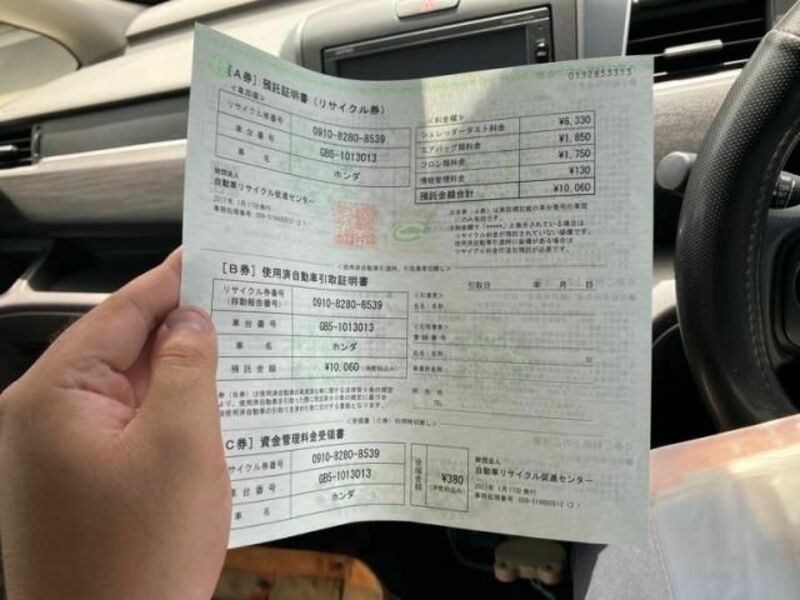 0132653313
[A券] 預託証明書 (リサイクル券)
<車両欄>
リサイクル券番号 0910-8280-8539
車台番号 GB5-1013013
車名 ホンダ
<料金欄>
シュレッダーダスト料金 ¥6,330
エアバッグ類料金 ¥1,850
フロン類料金 ¥1,750
情報管理料金 ¥130
預託金額合計 ¥10,060
財団法人
自動車リサイクル促進センター
2017年 1月17日発行
[B券] 使用済自動車引取証明書
リサイクル券番号
(移動報告番号) 0910-8280-8539
車台番号 GB5-1013013
車名 ホンダ
預託金額 ¥10,060 (消費税込み)
引取日 年 月 日
氏名・名称
登録番号
氏名・名称
事業所名称
所在地
TEL
C券] 資金管理料金受領書
サイクル券番号 0910-8280-8539
車台番号 GB5-1013013
車名 ホンダ
受領金額 ¥380
(消費税込み)
財団法人
自動車リサイクル促進センター
2017年 1月17日発行